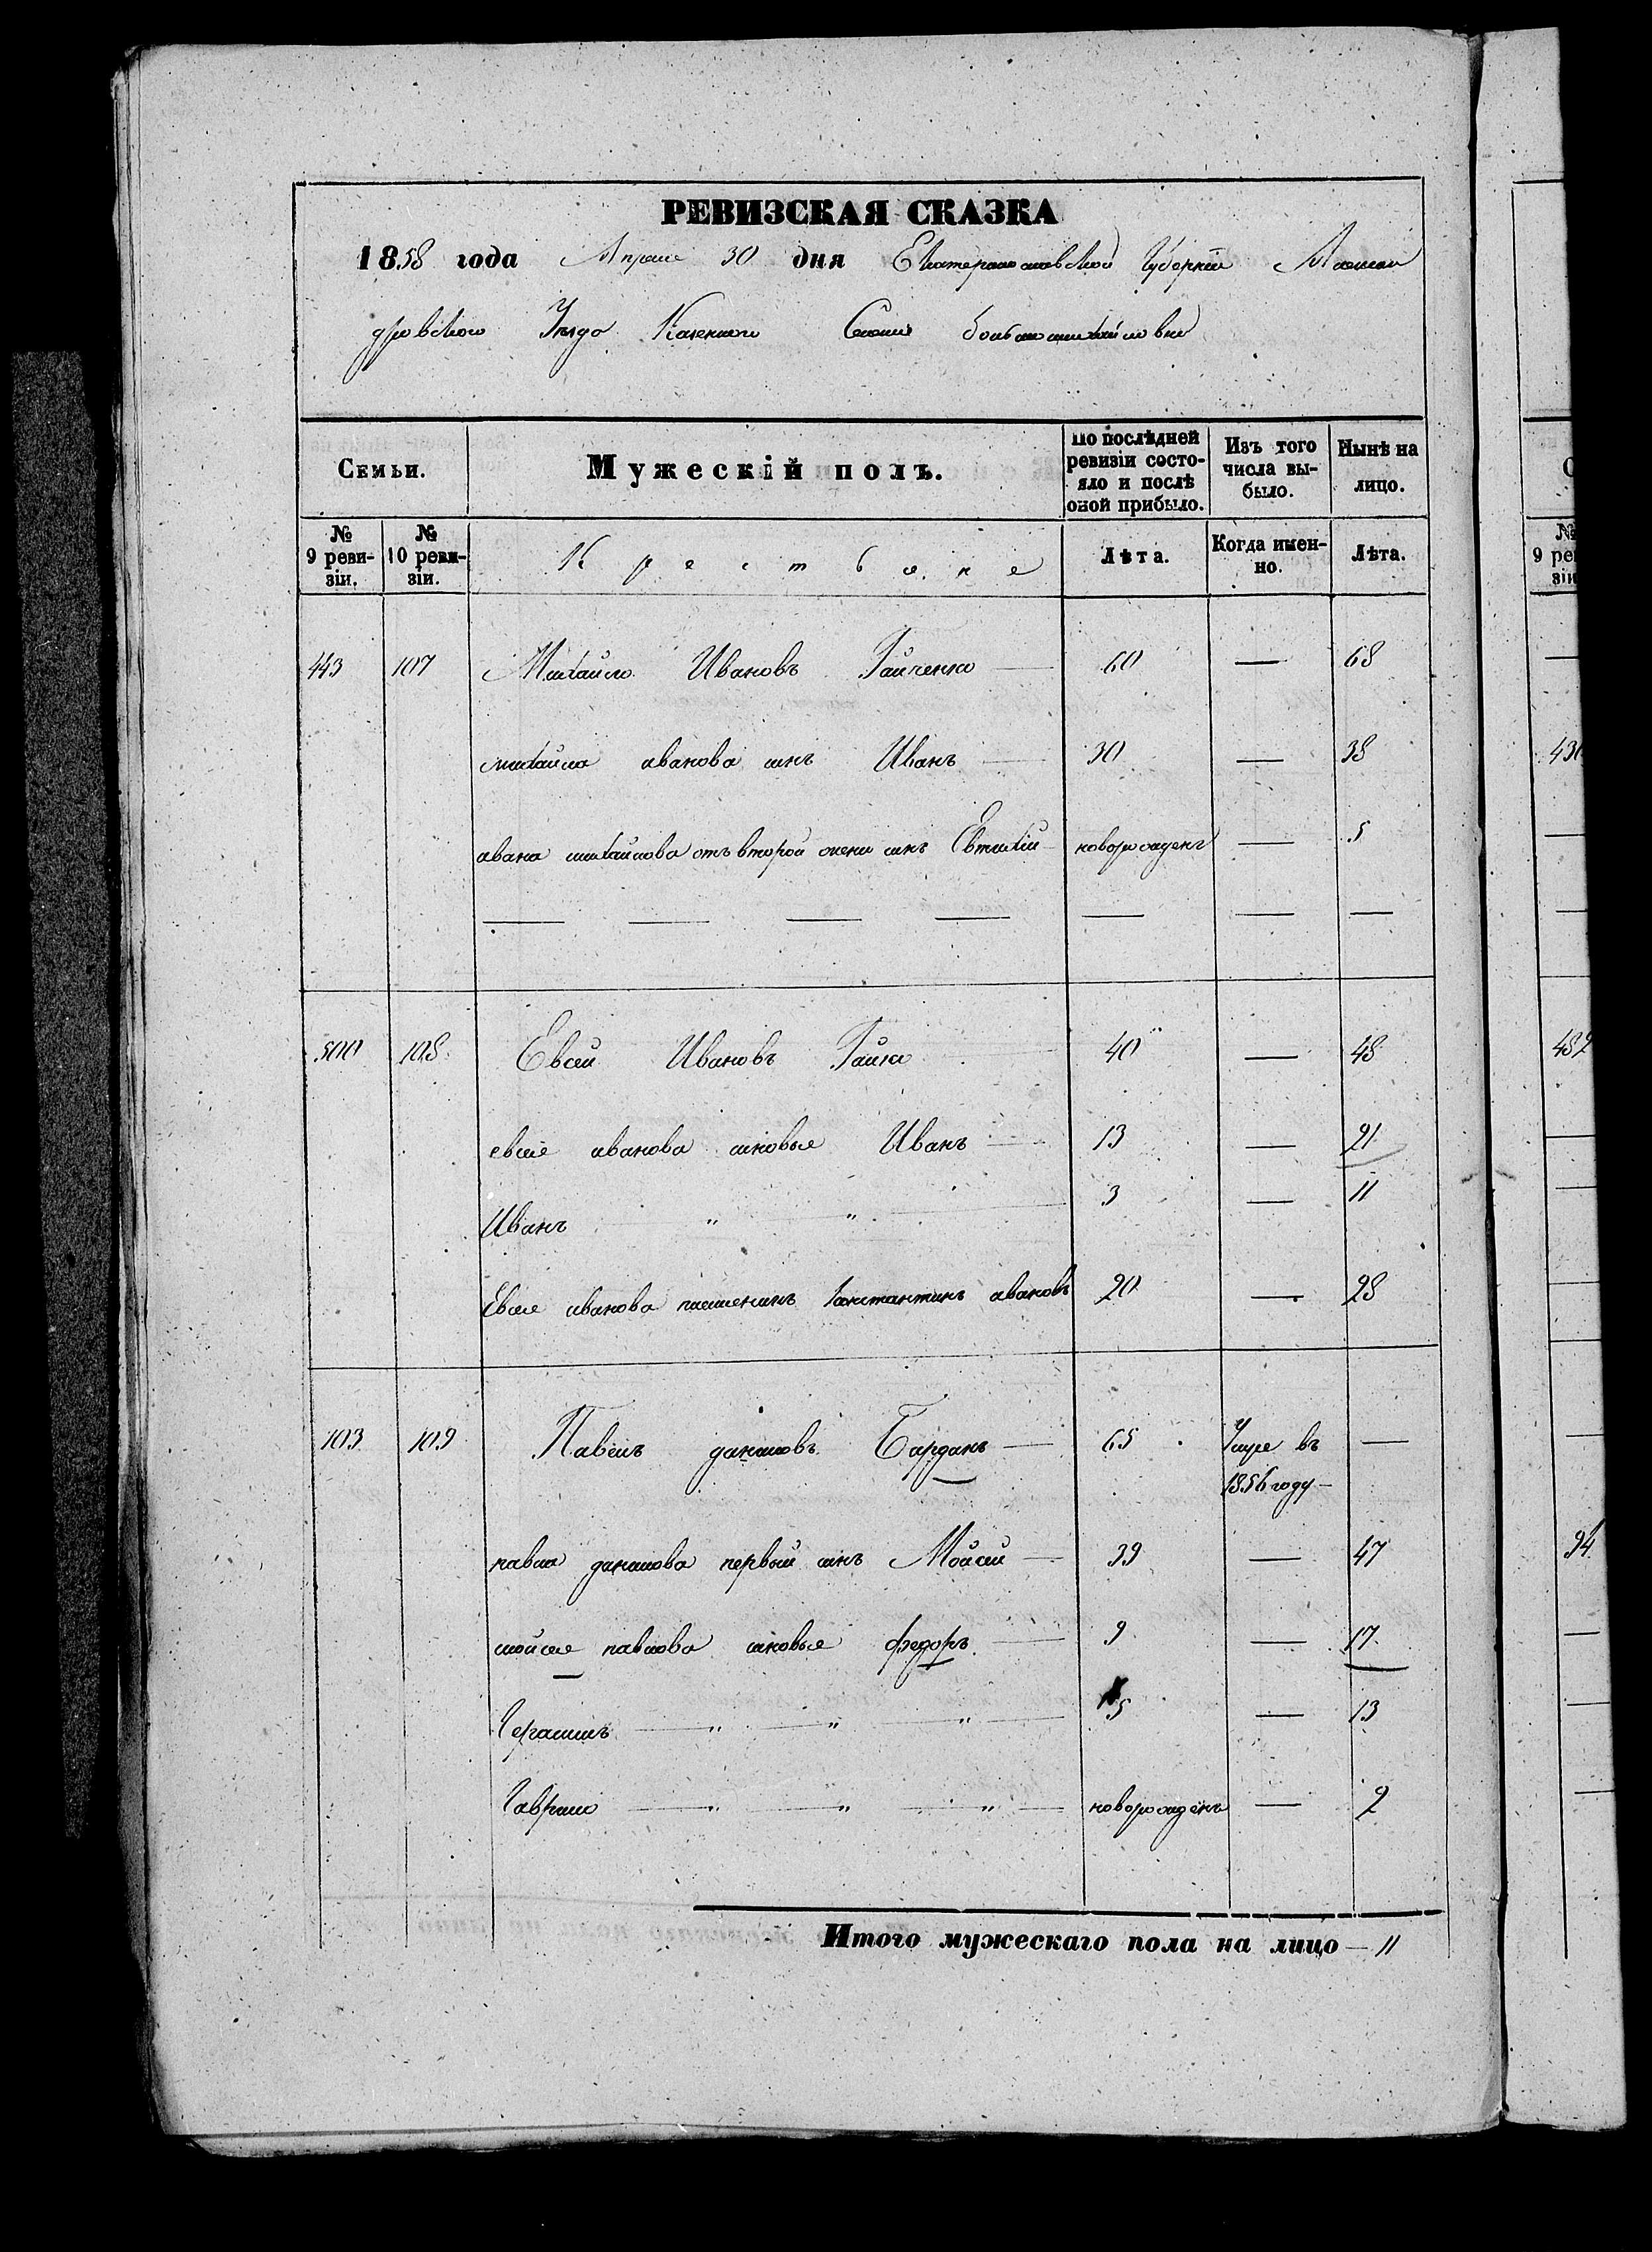 РЕВИЗСКАЯ СКАЗКА
1858 года Апреля 30 дня Екатеринославской Губерніи Алексан
дровскаго Уезда Казеннаго Селенія большомихайловки
Семьи.
Мужескій полъ.
По послѣдней ревизіи состояло и послѣ оной прибыло.
Изъ того числа выбыло.
Нынѣ на лицо.
№ 9 ревизіи.
№ 10 ревизіи.
Крестьяне
Лѣта.
Когда именно.
Лѣта.
443 107 Михайло Ивановъ Гайченко — 60 — 68
михайла иванова сынъ Иванъ — 30 — 38
ивана михайлова отъ второй жены сынъ Евтихій новорожденъ — 5
500 108 Евсей Ивановъ Гайка 40 — 48
евсея иванова сыновья Иванъ — 13 — 21
Иванъ " " 3 — 11
Евсея иванова племяникъ Констант­инъ ивановъ 20 — 28
103 109 Павелъ даниловъ Барданъ — 65 Умре въ —
1856 году —
павла данилова первый сынъ Мойсей — 39 — 47
мойсея павлова сыновья федоръ — 9 — 17
Герасимъ — " — " — " — 5 — 13
Гаврило — " — " — " — новорожденъ — 2
Итого мужескаго пола на лицо — 11
№
9 ре
зі
482
94